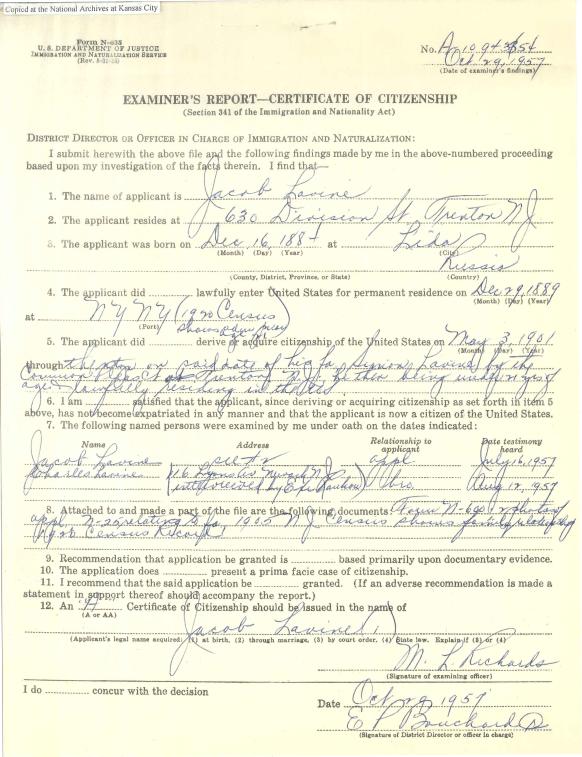 Copied at the National Archives at Kansas City
Form N-635
U. S. DEPARTMENT OF JUSTICE
IMMIGRATION AND NATURALIZATION SERVICE
No. A
Oct 29, 1957
(Date of examiner's findings)
EXAMINER'S REPORT—CERTIFICATE OF CITIZENSHIP
(Section 341 of the Immigration and Nationality Act)
DISTRICT DIRECTOR OR OFFICER IN CHARGE OF IMMIGRATION AND NATURALIZATION:
I submit herewith the above file and the following findings made by me in the above-numbered proceeding
based upon my investigation of the facts therein. I find that—
1. The name of applicant is Jacob Lavine
2. The applicant resides at 630 Division St. Trenton NJ
3. The applicant was born on Dec 16, 188 at Lida
(Month) (Day) (Year) (City)
Russia
(County, District, Province, or State) (Country)
4. The applicant did lawfully enter United States for permanent residence on Dec 29, 1889
(Month) (Day) (Year)
at NY NY (1920 Census
(Port) shows
5. The applicant did derive or acquire citizenship of the United States on May 3, 1901
(Month) (Day) (Year)
through on said date of his fa, Lavine by the
Common Pleas Ct at Trenton NJ, he then being under yrs of
age & lawfully residing in the US
6. I am satisfied that the applicant, since deriving or acquiring citizenship as set forth in item 5
above, has not become expatriated in any manner and that the applicant is now a citizen of the United States.
7. The following named persons were examined by me under oath on the dates indicated:
Name Address Relationship to applicant Date testimony heard
Jacob Lavine appl July 16, 1957
Charles Lavine 116 Newark NJ bro. Aug 12, 1957
8. Attached to and made a part of the file are the following documents: Form N-600 & photos of
appl, N-25 relating to fa, 1905 NJ Census shows family relationship
1920 Census Record
9. Recommendation that application be granted is based primarily upon documentary evidence.
10. The application does present a prima facie case of citizenship.
11. I recommend that the said application be granted. (If an adverse recommendation is made a
statement in support thereof should accompany the report.)
12. An A Certificate of Citizenship should be issued in the name of
(A or AA)
Jacob Lavine (1)
(Applicant's legal name acquired: (1) at birth, (2) through marriage, (3) by court order, (4) State law. Explain if (3) or (4)
M. L Richards
(Signature of examining officer)
I do concur with the decision
Date Oct 29 1957
E P Bouchard
(Signature of District Director or officer in charge)